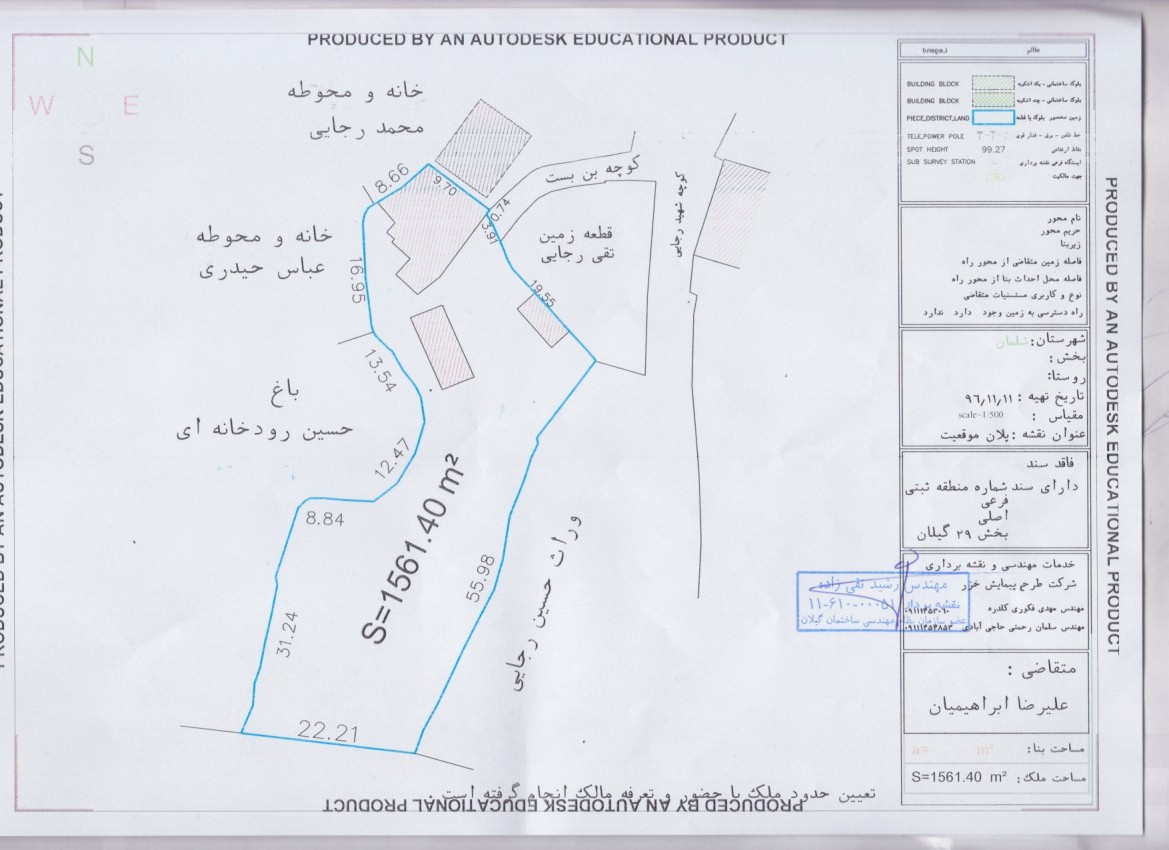 PRODUCED BY AN AUTODESK EDUCATIONAL PRODUCT
N
W E
S
خانه و محوطه
محمد رجایی
8.66
9.70
0.74
3.91
کوچه بن بست
کوچه شهید رجایی
قطعه زمین
تقی رجایی
خانه و محوطه
عباس حیدری
16.95
19.55
13.54
باغ
حسین رودخانه ای
12.47
8.84
S=1561.40 m²
55.98
وراث حسین رجایی
31.24
22.21
تعیین حدود ملک با حضور و تعرفه مالک انجام گرفته است .
PRODUCED BY AN AUTODESK EDUCATIONAL PRODUCT
PRODUCED BY AN AUTODESK EDUCATIONAL PRODUCT
PRODUCED BY AN AUTODESK EDUCATIONAL PRODUCT
علائم Legend
BUILDING BLOCK بلوک ساختمانی - یک اشکوبه
BUILDING BLOCK بلوک ساختمانی - چند اشکوبه
PIECE,DISTRICT,LAND زمین محصور بلوک یا قطعه
TELE,POWER POLE T-T- خط تلفن - برق - فشار قوی
SPOT HEIGHT 99.27 نقاط ارتفاعی
SUB SURVEY STATION ایستگاه فرعی نقشه برداری
جهت مالکیت
نام محور
حریم محور
زیربنا
فاصله زمین متقاضی از محور راه
فاصله محل احداث بنا از محور راه
نوع و کاربری مستثنیات متقاضی
راه دسترسی به زمین وجود دارد ندارد
شهرستان: شلمان
بخش :
روستا:
تاریخ تهیه : ۹۶٫۱۱٫۱۱
مقیاس : scale=1/500
عنوان نقشه :پلان موقعیت
فاقد سند
دارای سند شماره منطقه ثبتی
فرعی
اصلی
بخش ۲۹ گیلان
خدمات مهندسی و نقشه برداری
شرکت طرح پیمایش خزر
مهندس مهدی فکوری کلدره
مهندس سلمان رحمتی حاجی آبادی ۰۹۱۱۱۴۵۴۸۵۳
مهندس رشید تقی زاده
نقشه بردار ۱۱-۶۱۰-۰۰۰۵۱
عضو سازمان نظام مهندسی ساختمان گیلان
متقاضی :
علیرضا ابراهیمیان
مساحت بنا: a= m²
مساحت ملک: S=1561.40 m²